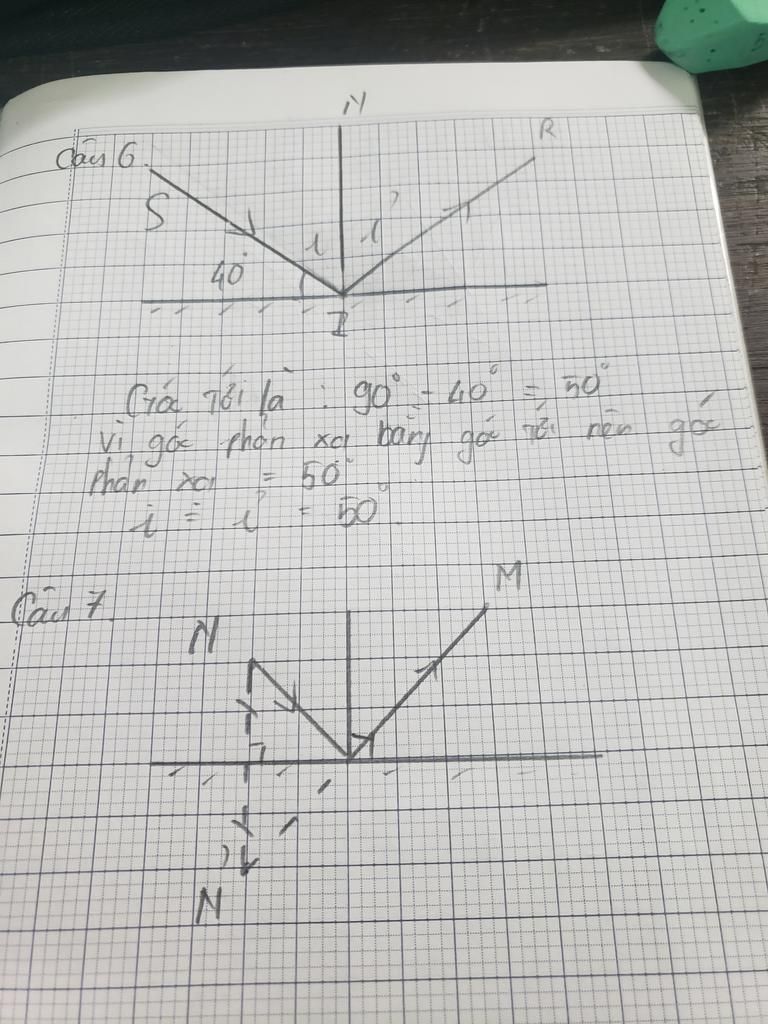 N
R
Câu 6.
S
i i'
40°
I
Góc tới là : 90° - 40° = 50°
Vì góc phản xạ bằng góc tới nên góc
phản xạ = 50°
i = i' = 50°
Câu 7.
M
N
N'